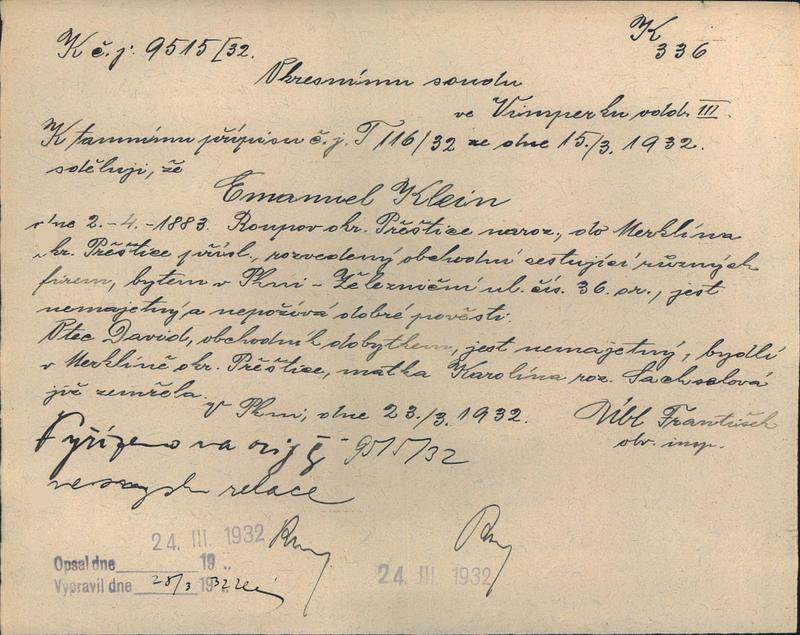 K č.j. 9515/32.
K
336
Okresnímu soudu
ve Vimperku odd. III.
K tamnímu přípisu č.j. T 116/32 ze dne 15./3. 1932.
sděluji, že
Emanuel Klein
dne 2.-4.-1883. Roupov okr. Přeštice naroz., do Merklína
okr. Přeštice přísl., rozvedený obchodní cestující různých
firem, bytem v Plzni - Železniční ul. čís. 36. or., jest
nemajetný a nepožívá dobré pověsti.
Otec David, obchodník dobytkem, jest nemajetný, bydlí
v Merklíně okr. Přeštice, matka Karolína roz. Sachselová
již zemřela.
V Plzni, dne 23./3. 1932.
Úbl František
obv. insp.
Vyřízeno na 9515/32
ve smyslu relace
24. III. 1932
Opsal dne 19
Vypravil dne 28/3 1932
24 III 1932